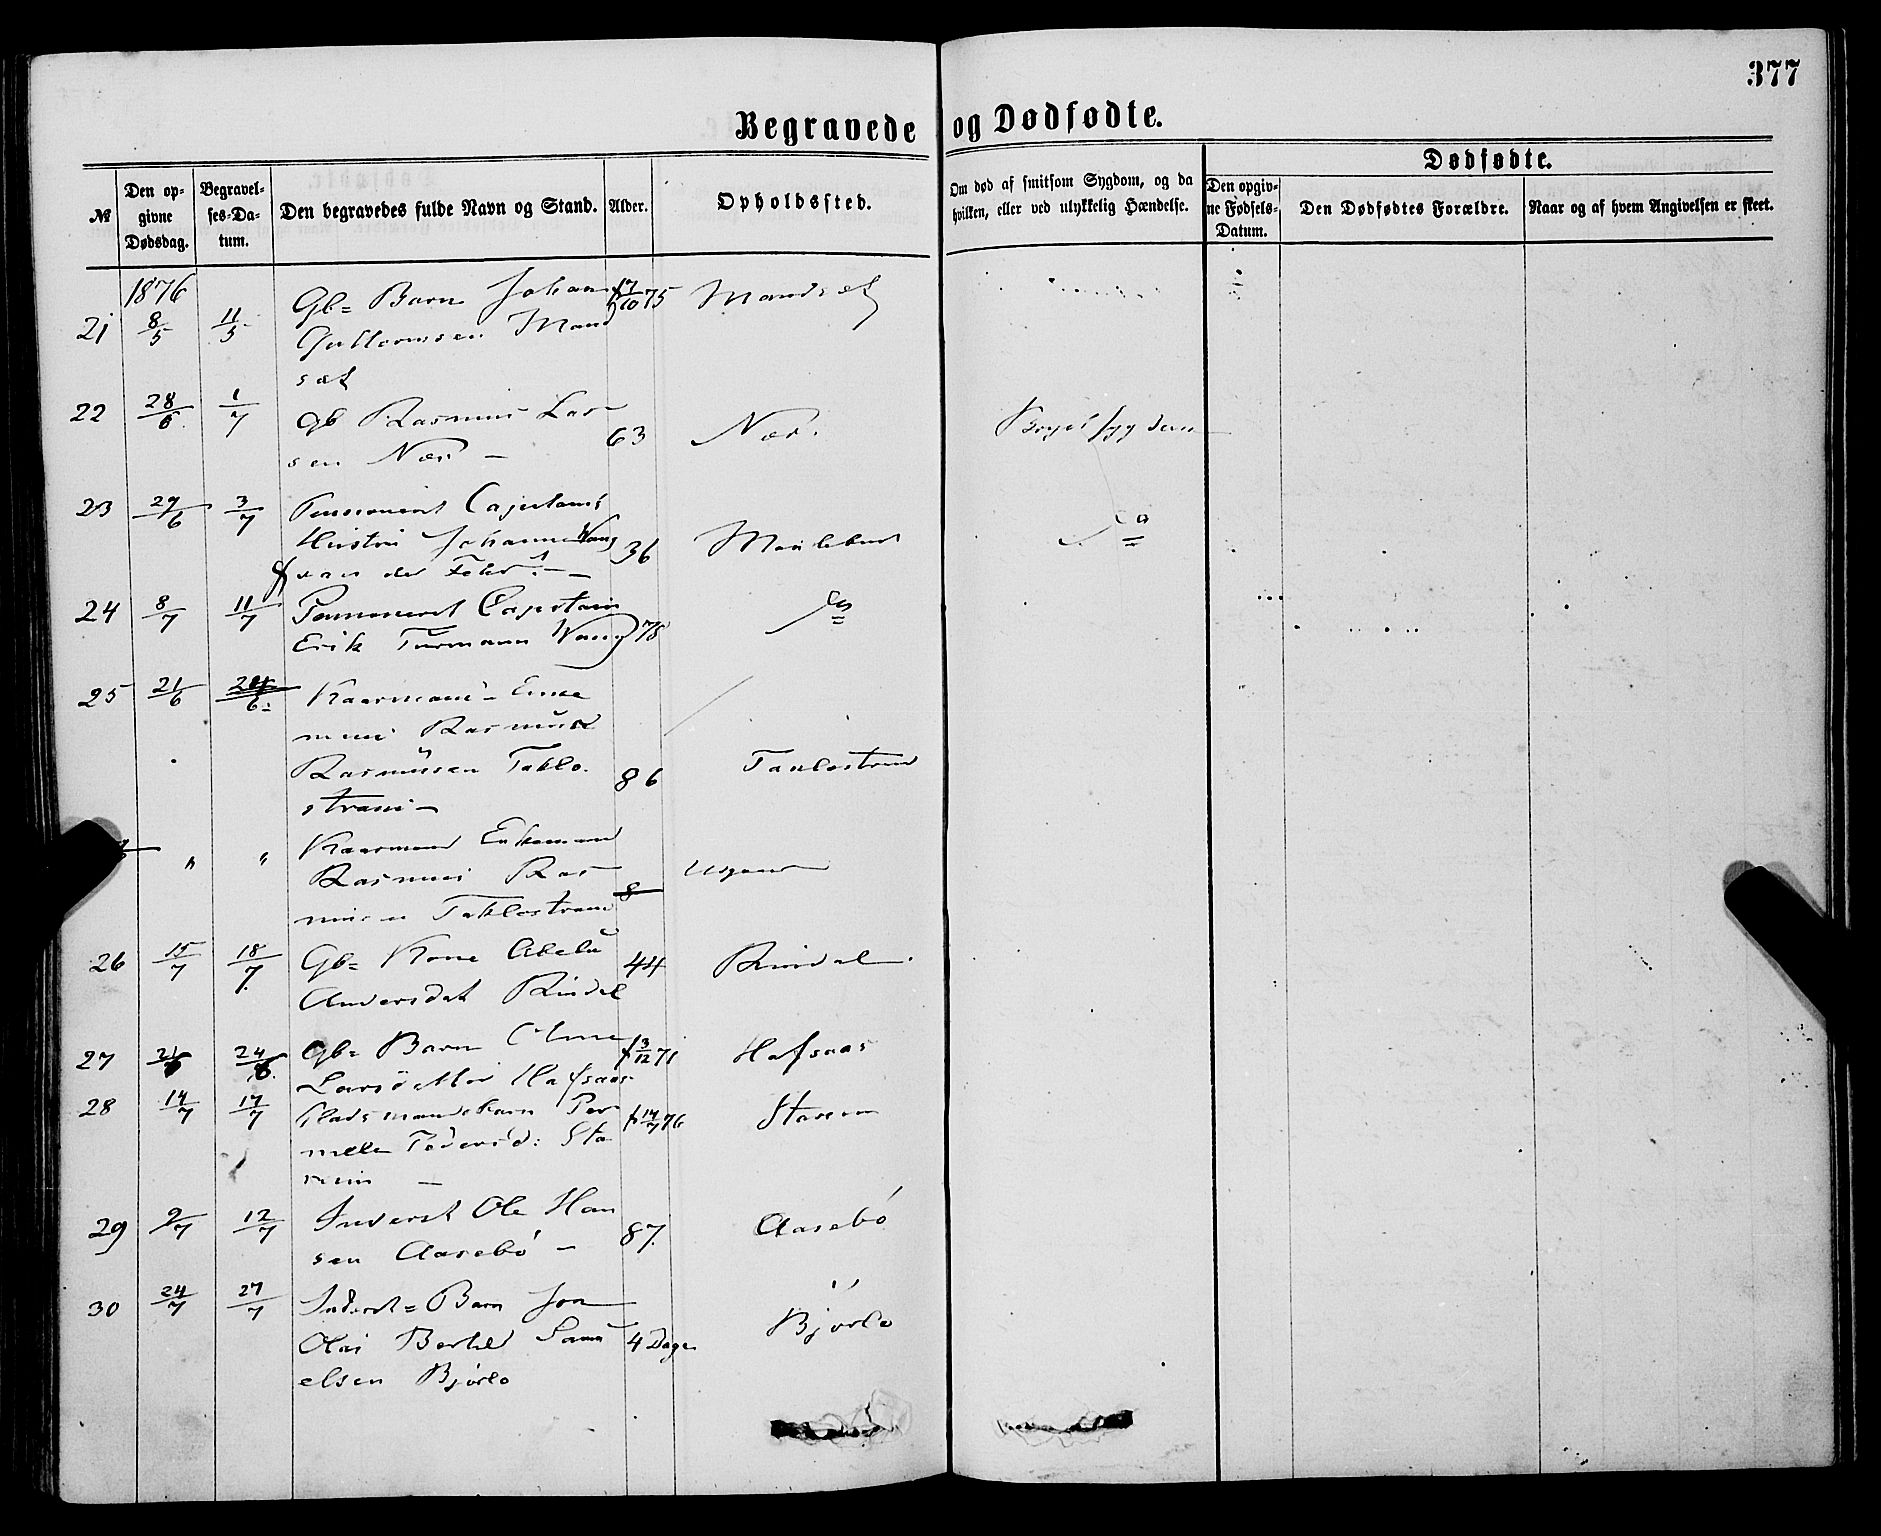 377
Begravede og Dødfødte.
№
Den opgivne Dødsdag.
Begravelses-Datum.
Den begravedes fulde Navn og Stand.
Alder.
Opholdssted.
Om død af smitsom Sygdom, og da hvilken, eller ved ulykkelig Hændelse.
Dødfødte.
Den opgivne Fødsels-Datum.
Den Dødfødtes Forældre.
Naar og af hvem Angivelsen er skeet.
1876
21 8/5 11/5 Gb= Barn Johan f 17/10 75 Mandsæt
Guttormsen Mand
sæt
22 28/6. 1/7 Gb Rasmus Lar
sen Nær - 63 Nær. Brystsygdom
23 29/6 3/7 Pensioneret Capitains
Hustru Johanne Wang 36
f van der
24 8/7 11/7 Pensioneret Capitain
Erik Turmann Wang 78 do
25 21/6 Kaarmand- Enke
Rasmus
Rasmusen Taklo- 86 Taklostrand
strand -
" " Kaarmand Enkemand
Rasmus Ras
musen Taklostrand 8
26 15/7 18/7. Gb= Kone Abelu 44 Rindal.
Andersdat Rindal
27 21/6 24/6. Gb= Barn f 3/12 71 Hafsaas
Larsdatter Hafsaas
28 14/7 17/7 Pladsmandsbarn Per f 14/7 76 Starum
nelle Pedersd: Sta
rum -
29 9/7 12/7 Inderst Ole Han
sen Aasebö - 87. Aasebö
30 24/7 27/7 Inderst= Barn Jon
Olai Bertel Samu 4 Dage Bjørlo
elsen Bjørlo